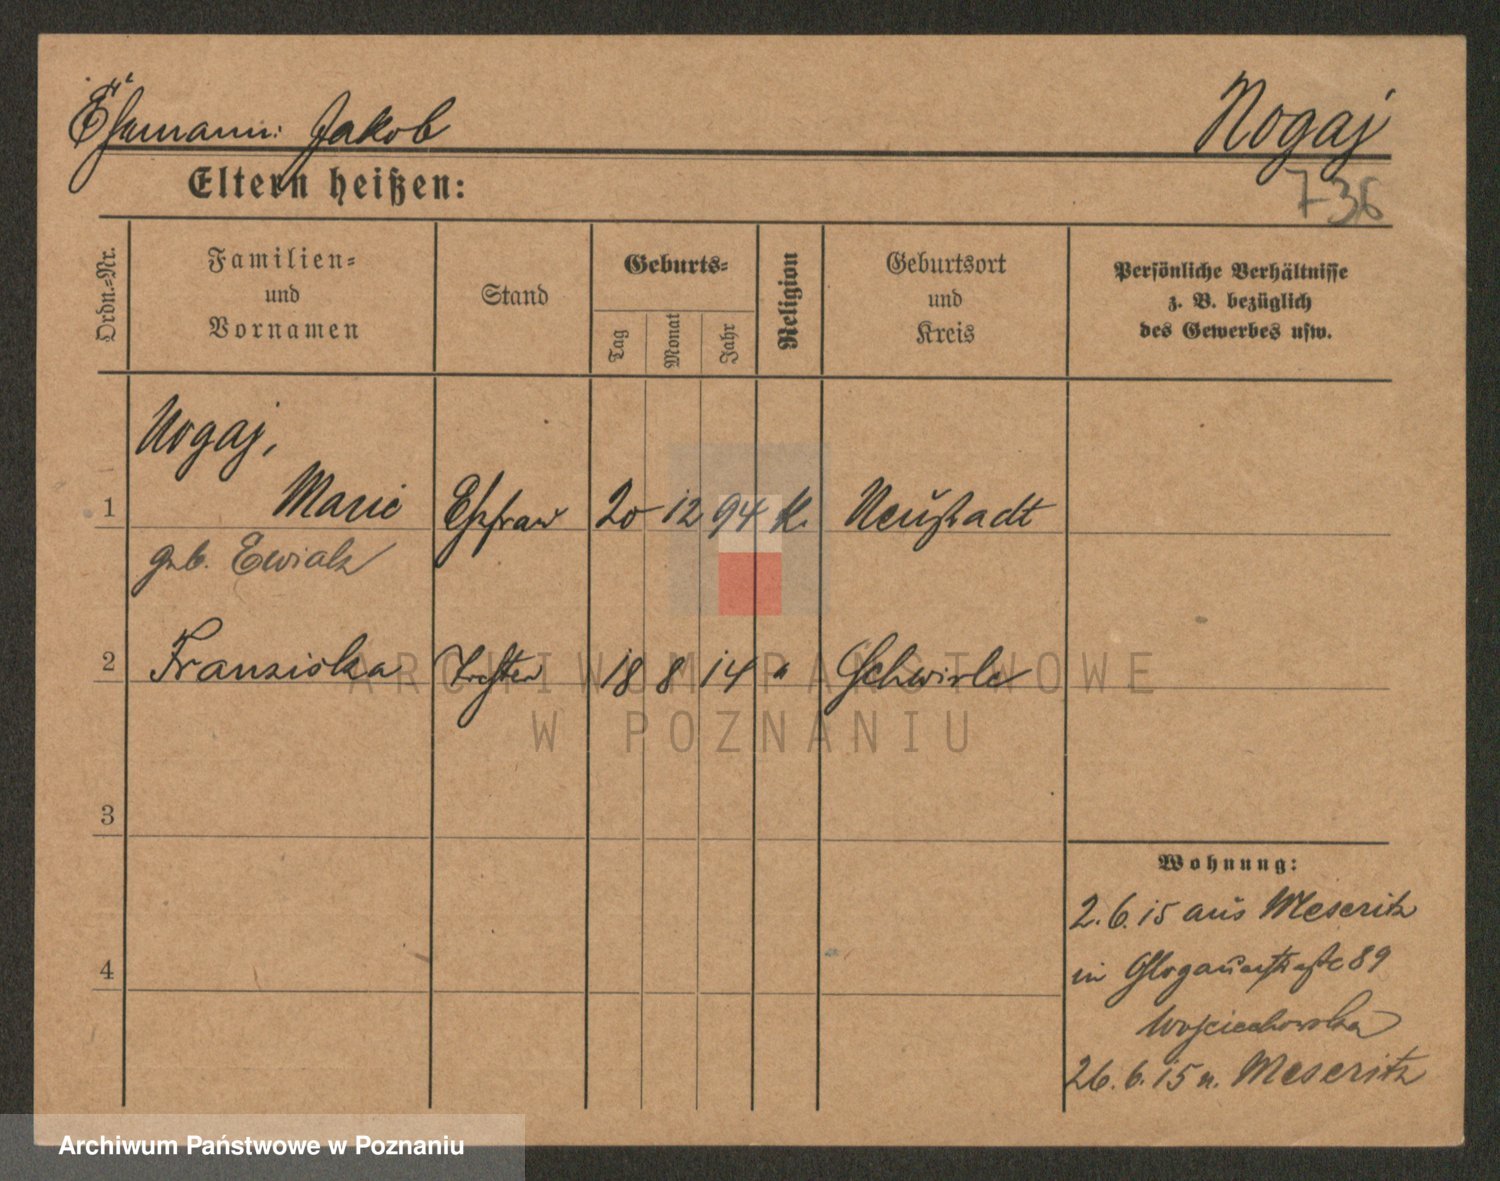 Ehemann: Jakob Nogaj
Eltern heißen:
7-36
Ordn.-Nr.
Familien-
und
Vornamen
Stand
Geburts-
Tag
Monat
Jahr
Religion
Geburtsort
und
Kreis
Persönliche Verhältnisse
z. B. bezüglich
des Gewerbes usw.
Nogaj,
1 Marie Ehefrau 20 12 94 K. Neustadt
geb. Ewiak
2 Franziska Tochter 18 8 14 " Schwirle
3
4
Wohnung:
2.6.15 aus Meseritz
in Glogauerstraße 89
Wojciechowska
26.6.15 n. Meseritz
ARCHIWUM PAŃSTWOWE
W POZNANIU
Archiwum Państwowe w Poznaniu